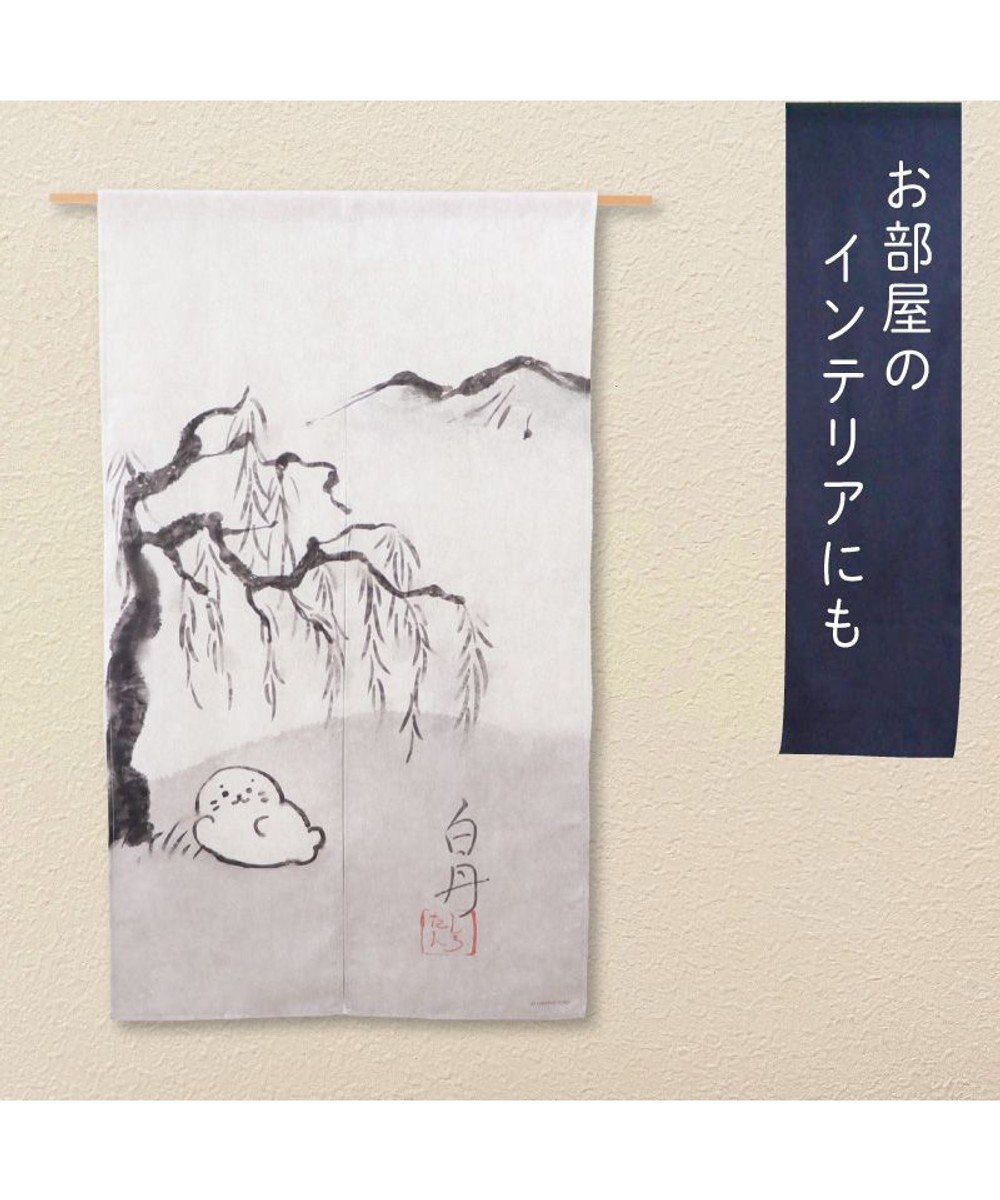 お部屋の
インテリアにも
白丹
しろ
たん